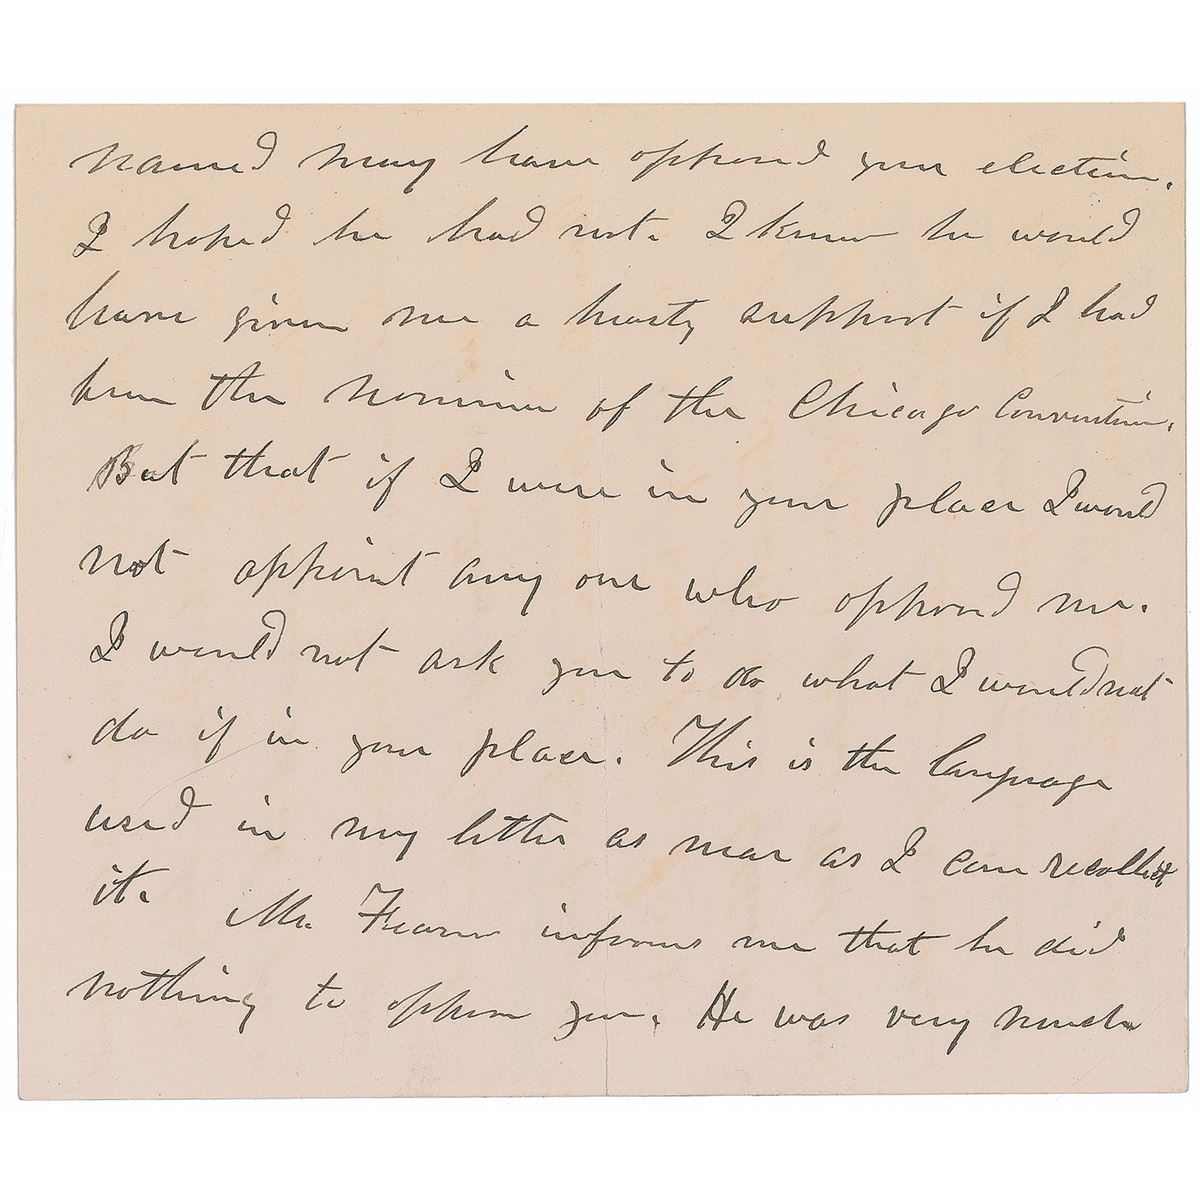 named may have opposed your election.
I hoped he had not. I knew he would
have given me a hearty support if I had
been the nominee of the Chicago Convention.
But that if I were in your place I would
not appoint any one who opposed me.
I would not ask you to do what I would not
do if in your place. This is the language
used in my letter as near as I can recollect
it. Mr. Fearn informs me that he did
nothing to oppose you. He was very much